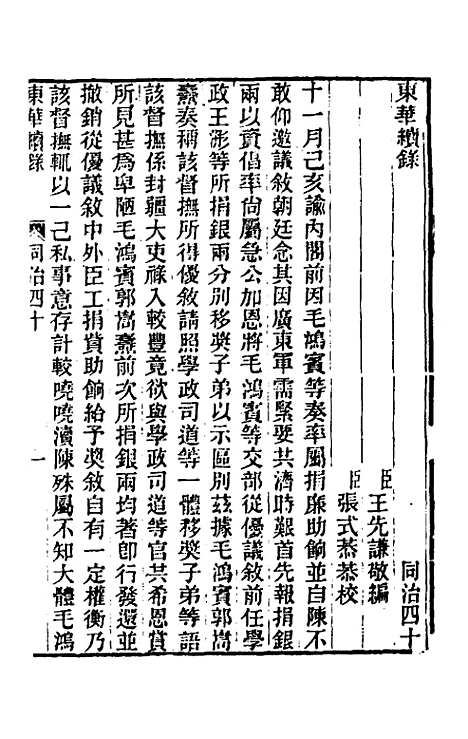 東華續錄　同治四十
臣王先謙敬編
臣張式恭恭校
十一月己亥諭內閣前因毛鴻賓等奏率屬捐廉助餉並自陳不
敢仰邀議敘朝廷念其因廣東軍需緊要共濟時艱首先報捐銀
兩以資倡率尙屬急公加恩將毛鴻賓等交部從優議敘前任學
政王浵等所捐銀兩分別移奬子弟以示區別茲據毛鴻賓郭嵩
燾奏稱該督撫所得優敘請照學政司道等一體移奬子弟等語
該督撫係封疆大吏祿入較豐竟欲與學政司道等官共希恩賞
所見甚爲卑陋毛鴻賓郭嵩燾前次所捐銀兩均著卽行發還並
撤銷從優議敘中外臣工捐貲助餉給予奬敘自有一定權衡乃
該督撫輒以一己私事意存計較嘵嘵瀆陳殊屬不知大體毛鴻
東華續錄　同治四十　一